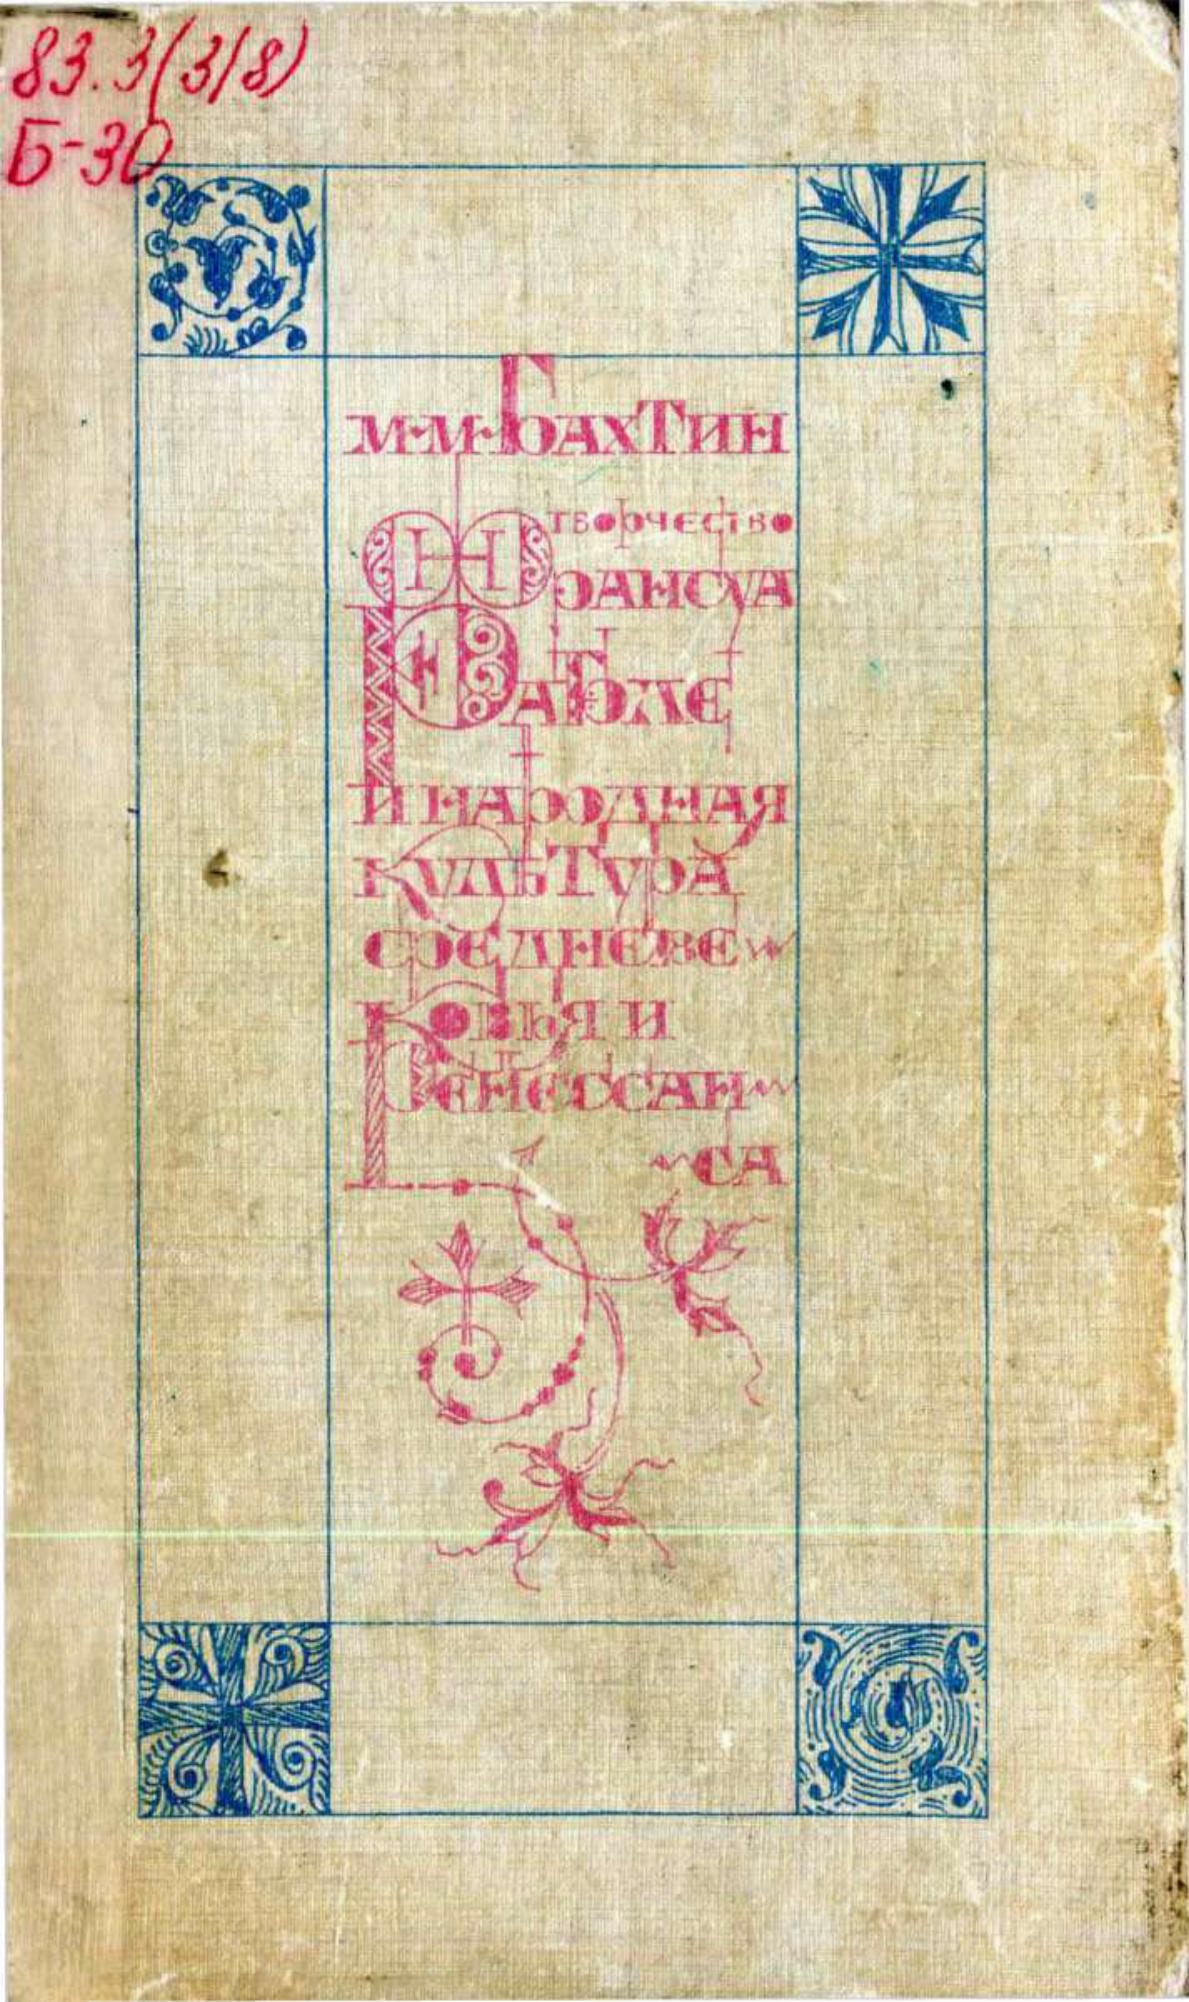 83.3(3/8)
Б-30
М·М·БАХТИН
ТВОРЧЕСТВО
ФРАНСУА
РАБЛЕ
И НАРОДНАЯ
КУЛЬТУРА
СРЕДНЕВЕ
КОВЬЯ И
РЕНЕССАН
СА